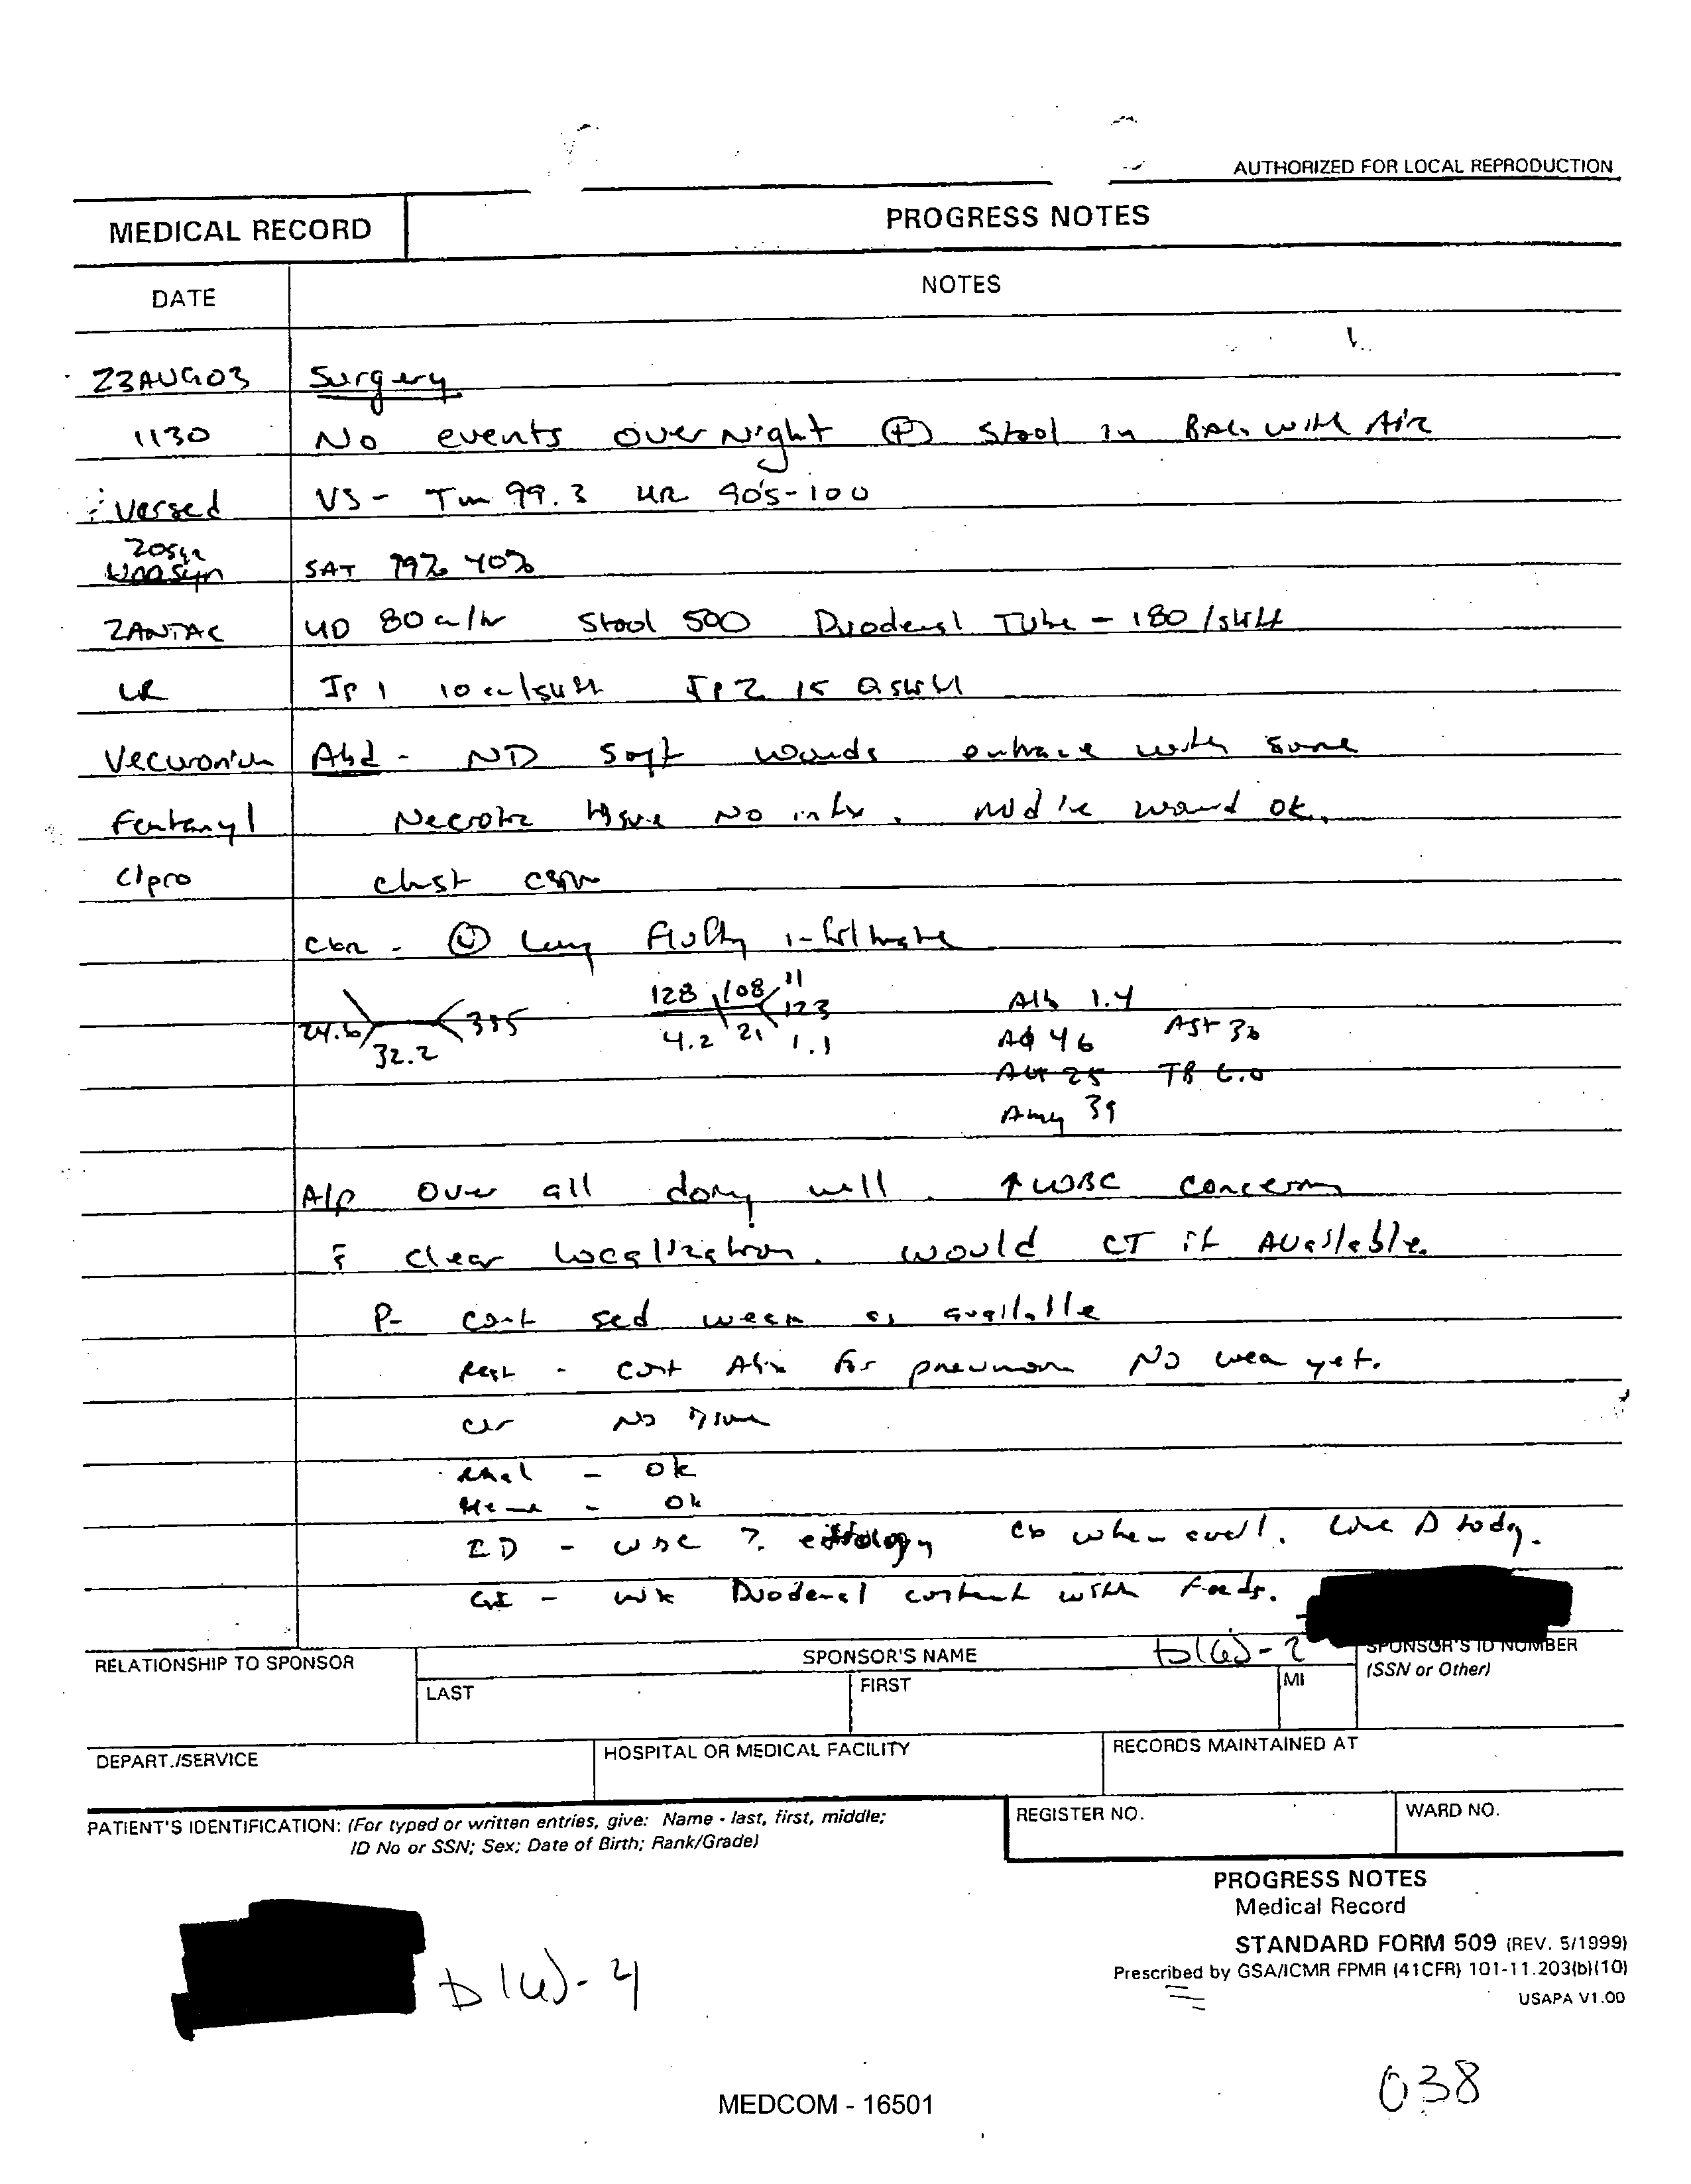 AUTHORIZED FOR LOCAL REPRODUCTION
MEDICAL RECORD
PROGRESS NOTES
DATE
NOTES
23AUG03 Surgery
1130 No events overnight (+) Stool in BAG with Air
Versed VS - Tm 99.3 HR 90's-100
Zosyn
Unasyn SAT 99% 40%
ZANTAC UO 80 cc/hr Stool 500 Duodenal Tube - 180/shift
LR JP 1 10 cc/shift JP 2 15 Q shift
Vecuronium Abd - ND soft wounds entrance with some
Fentanyl Necrotic tissue No infx. midline wound ok.
Cipro chest
CXR - Lung Fluffy infiltrate
128 108 11
24.6 395 123
32.2 4.2 21 1.1
Alb 1.4
46 AST 36
ALT 25 TB 6.0
Amy 39
A/P Over all doing well. ↑ WBC concerning
clear localization. would CT if Available.
P- cont sed wean as available
cont Abx for pneumonia No wean yet.
CV No issue
Renal - ok
Heme - ok
ID - WBC ? etiology when avail. Line Δ today.
GI - Duodenal content with Feeds.
b(6)-2
RELATIONSHIP TO SPONSOR
SPONSOR'S NAME
SPONSOR'S ID NUMBER
(SSN or Other)
LAST
FIRST
MI
DEPART./SERVICE
HOSPITAL OR MEDICAL FACILITY
RECORDS MAINTAINED AT
PATIENT'S IDENTIFICATION: (For typed or written entries, give: Name - last, first, middle;
ID No or SSN; Sex; Date of Birth; Rank/Grade)
REGISTER NO.
WARD NO.
PROGRESS NOTES
Medical Record
STANDARD FORM 509 (REV. 5/1999)
Prescribed by GSA/ICMR FPMR (41CFR) 101-11.203(b)(10)
USAPA V1.00
b(6)-4
038
MEDCOM - 16501